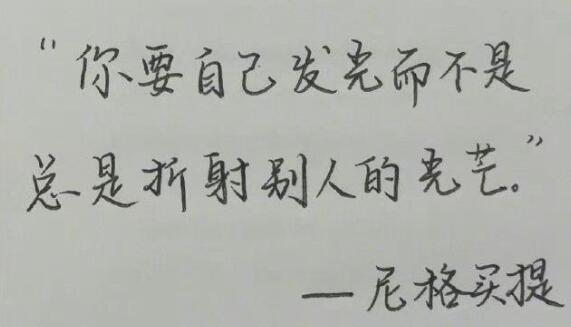 “你要自己发光而不是
总是折射别人的光芒。”
—尼格买提